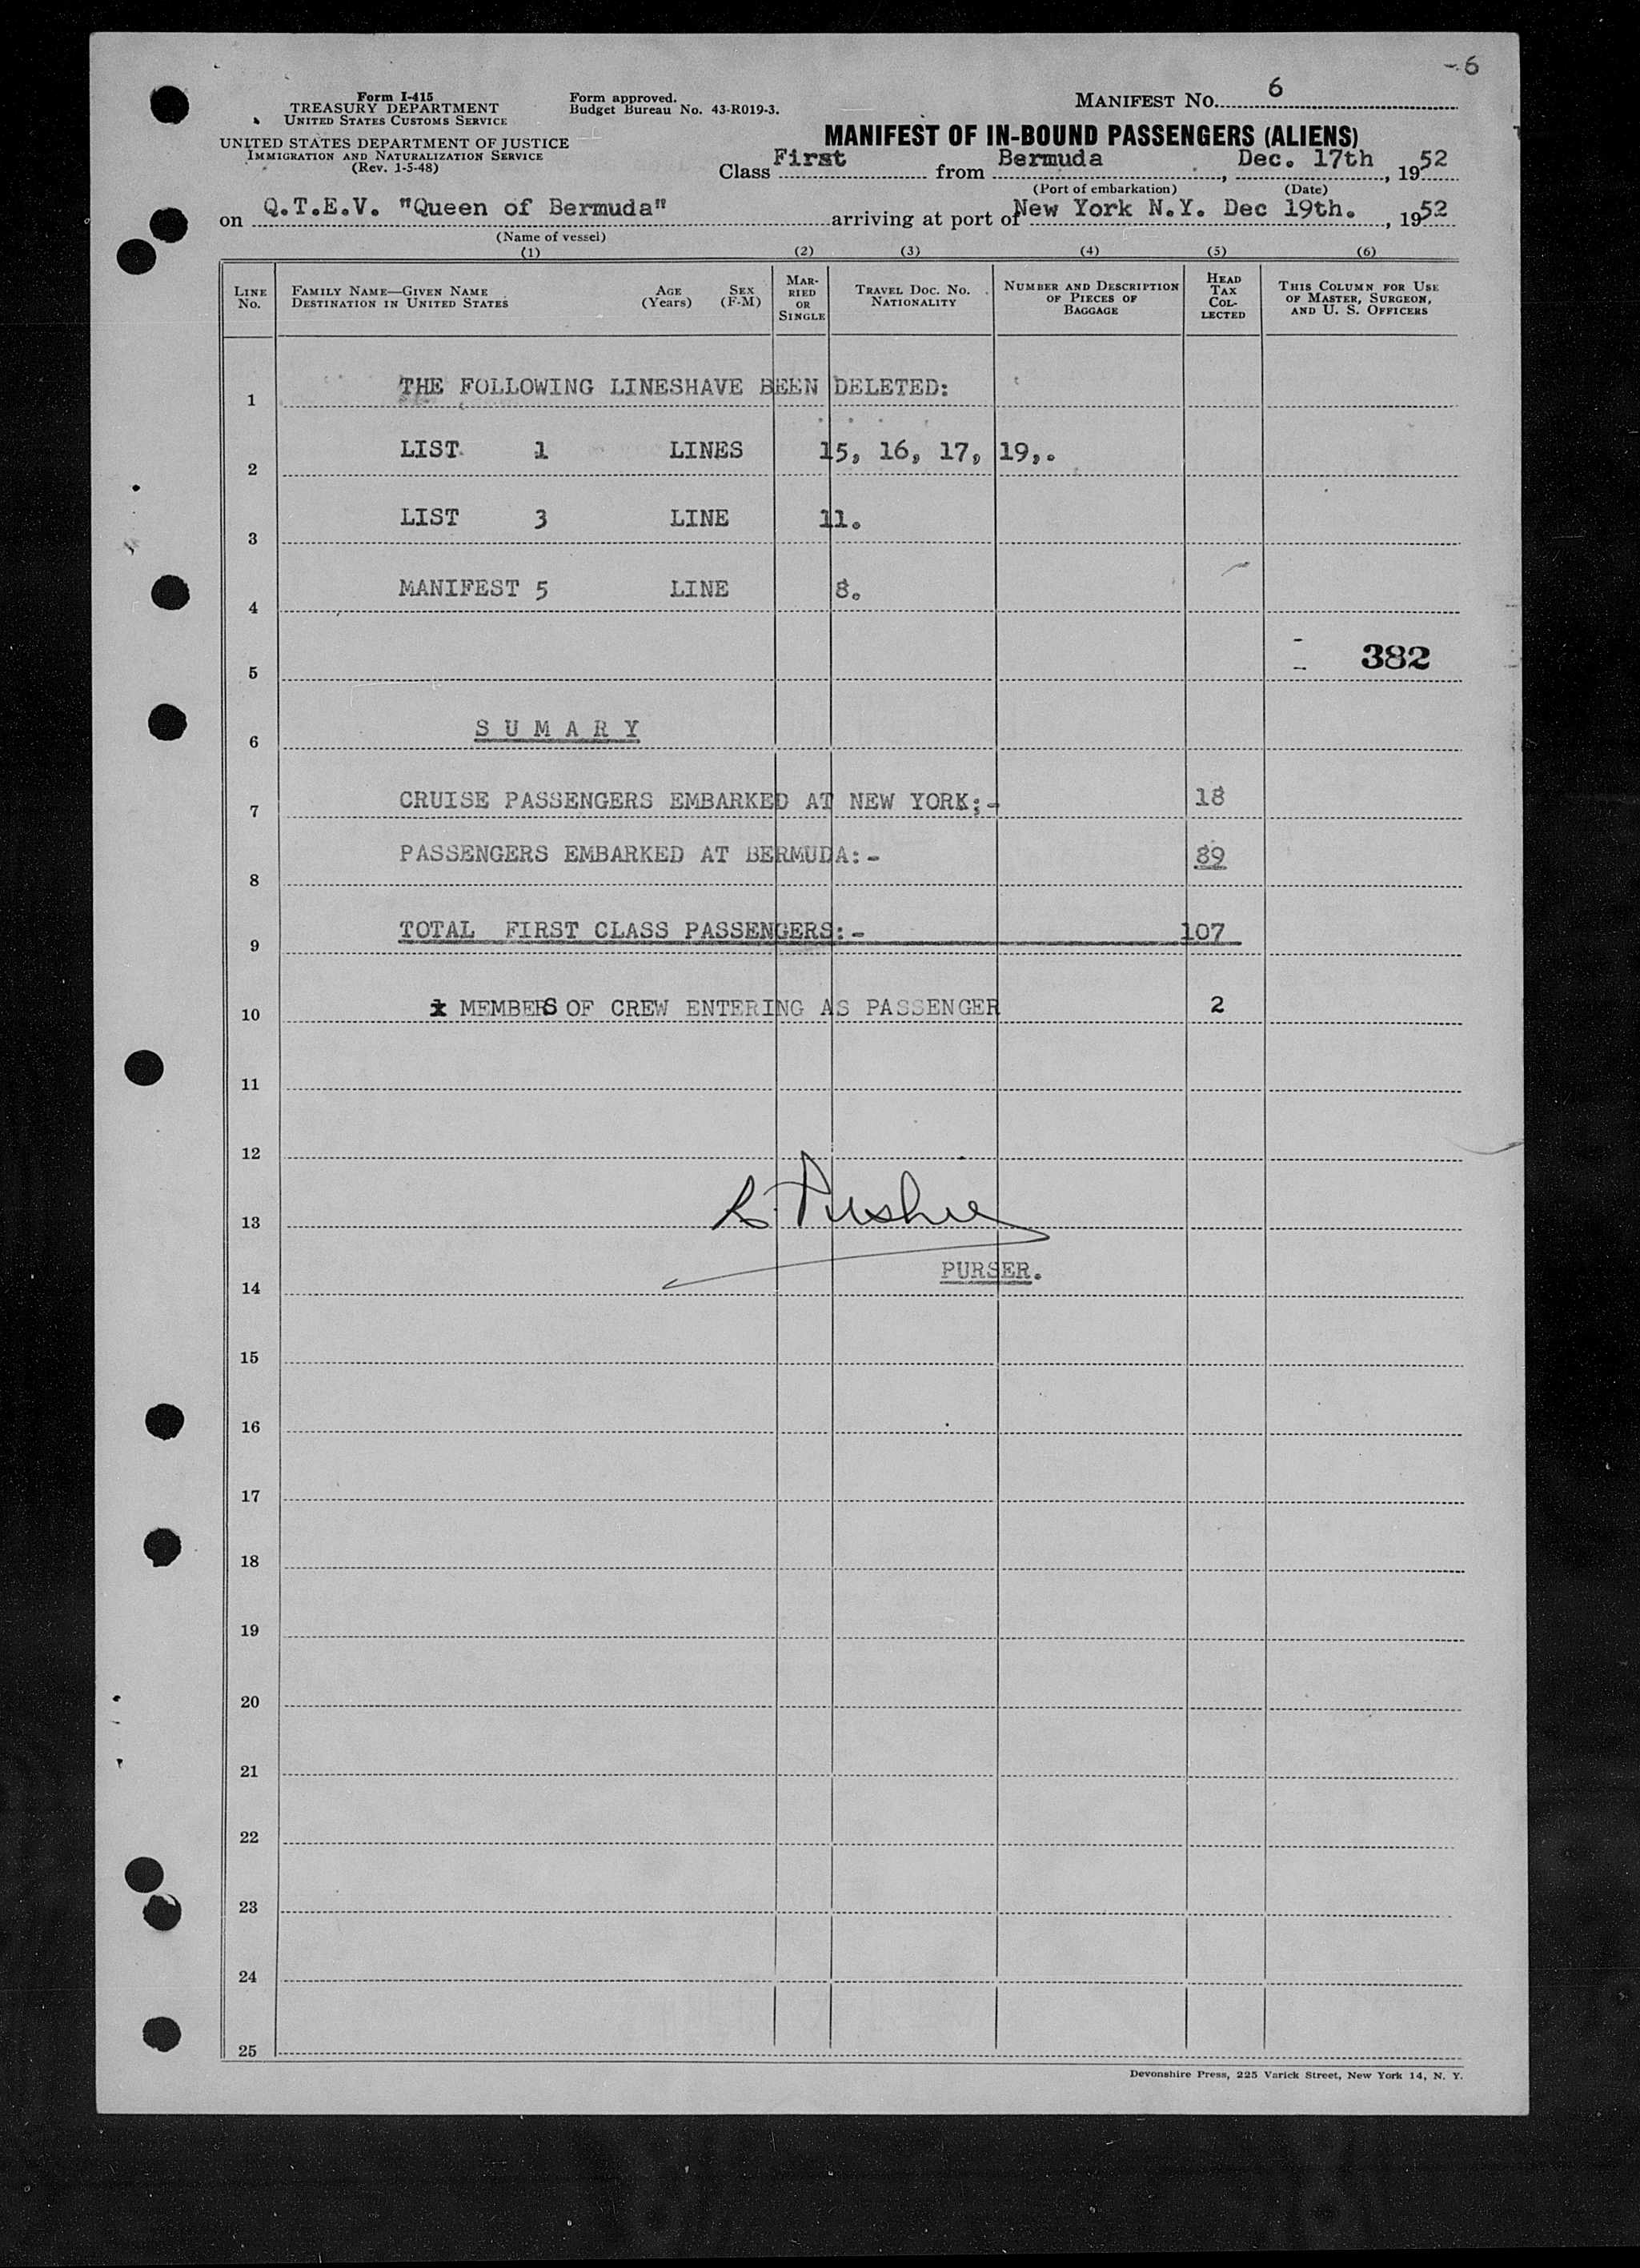 -6
Form I-415
TREASURY DEPARTMENT
UNITED STATES CUSTOMS SERVICE
UNITED STATES DEPARTMENT OF JUSTICE
IMMIGRATION AND NATURALIZATION SERVICE
(Rev. 1-5-48)
Form approved.
Budget Bureau No. 43-R019-3.
MANIFEST No. 6
MANIFEST OF IN-BOUND PASSENGERS (ALIENS)
Class First from Bermuda, Dec. 17th, 1952
(Port of embarkation) (Date)
on Q.T.E.V. "Queen of Bermuda" arriving at port of New York N.Y. Dec 19th., 1952
(Name of vessel)
(1) (2) (3) (4) (5) (6)
LINE No.
FAMILY NAME—GIVEN NAME
DESTINATION IN UNITED STATES
AGE (Years)
SEX (F-M)
MAR-
RIED
OR
SINGLE
TRAVEL DOC. NO.
NATIONALITY
NUMBER AND DESCRIPTION
OF PIECES OF
BAGGAGE
HEAD
TAX
COL-
LECTED
THIS COLUMN FOR USE
OF MASTER, SURGEON,
AND U. S. OFFICERS
1 THE FOLLOWING LINESHAVE BEEN DELETED:
2 LIST 1 LINES 15, 16, 17, 19,.
3 LIST 3 LINE 11.
4 MANIFEST 5 LINE 8.
5 382
6 S U M A R Y
7 CRUISE PASSENGERS EMBARKED AT NEW YORK;- 18
8 PASSENGERS EMBARKED AT BERMUDA:- 89
9 TOTAL FIRST CLASS PASSENGERS:- 107
10 MEMBERS OF CREW ENTERING AS PASSENGER 2
11
12
13
14 PURSER.
15
16
17
18
19
20
21
22
23
24
25
Devonshire Press, 225 Varick Street, New York 14, N. Y.